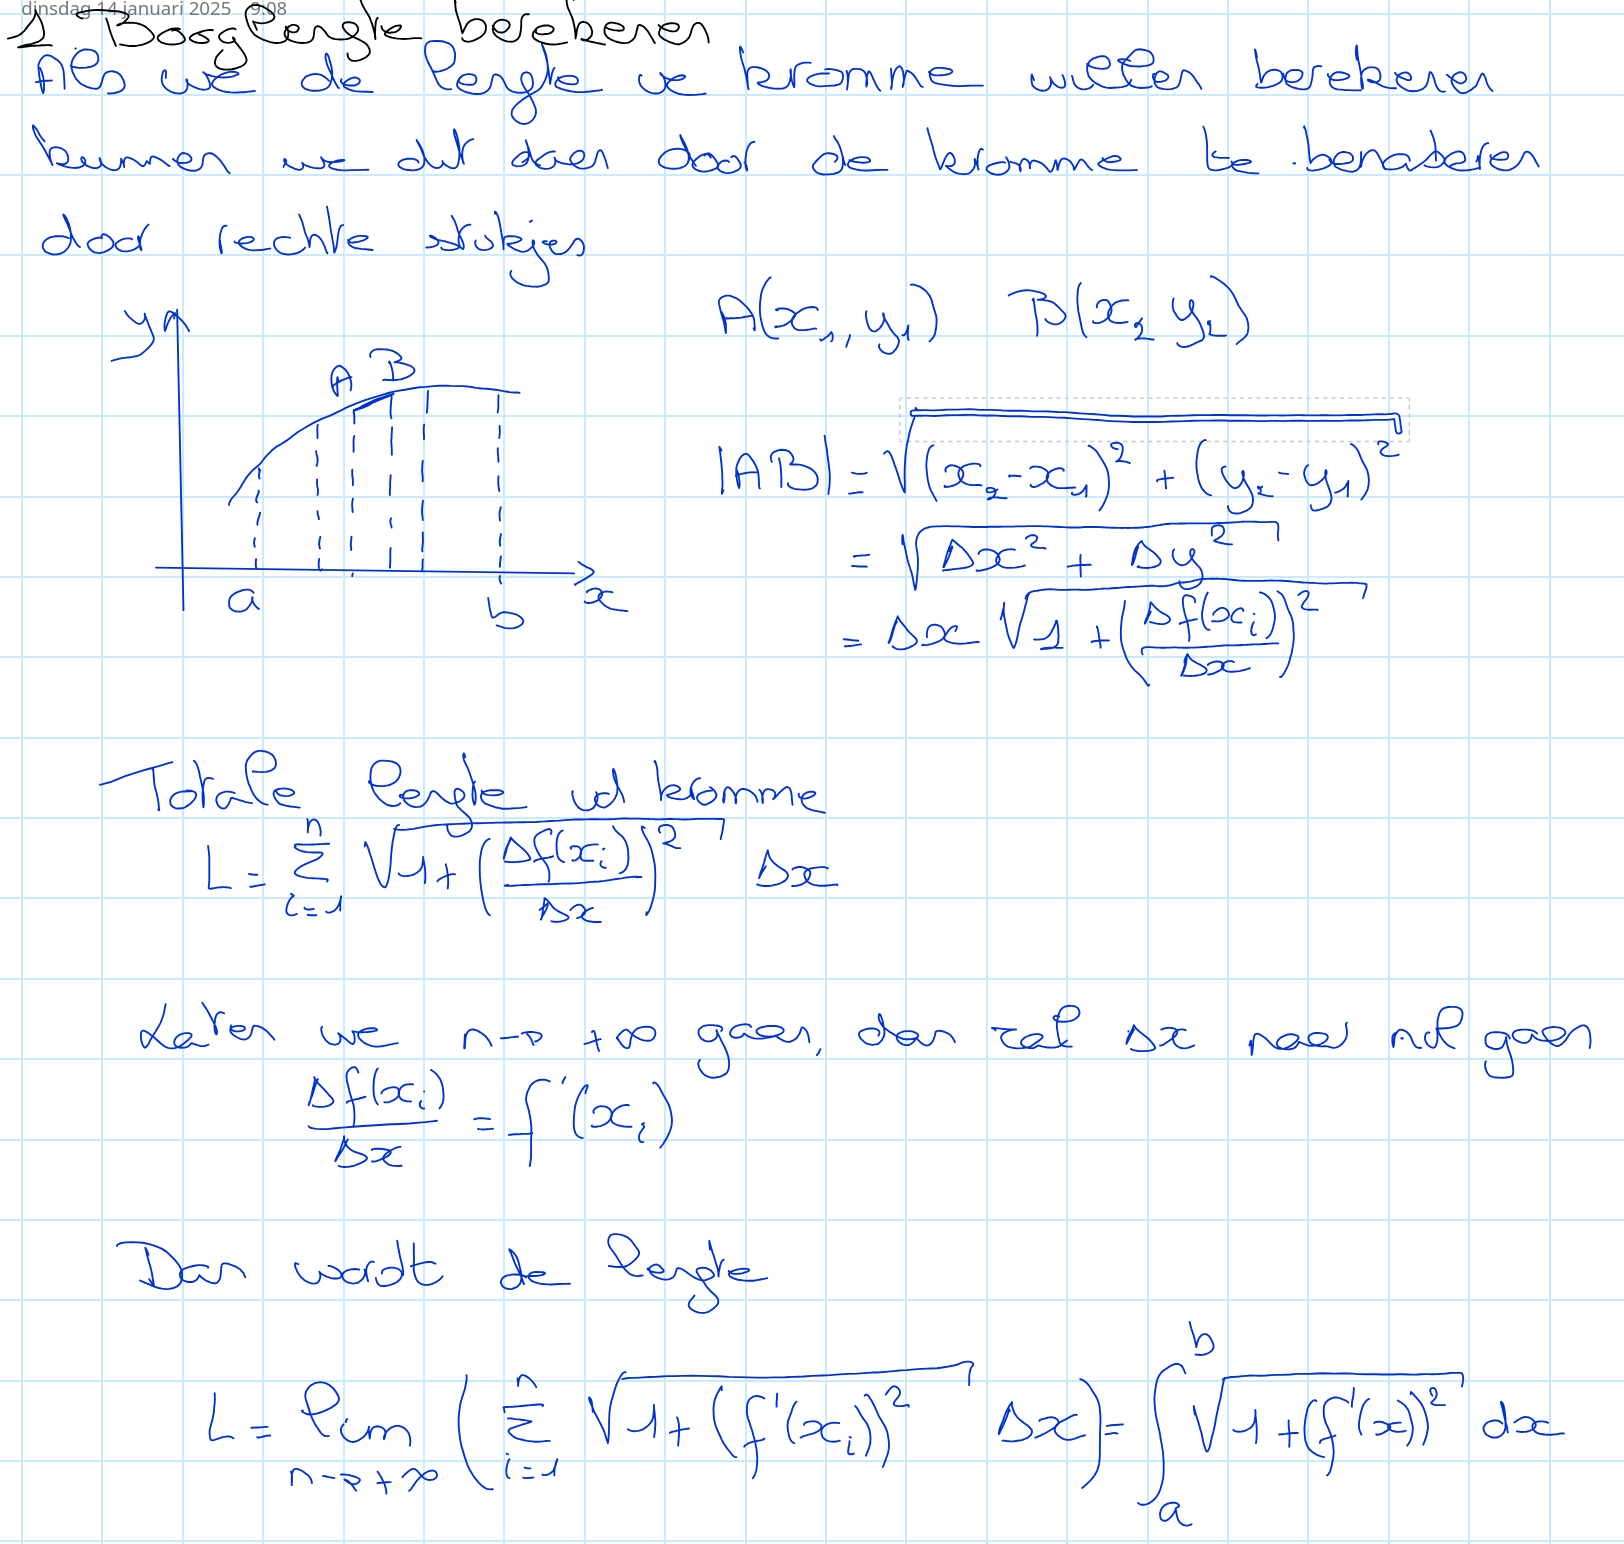 dinsdag 14 januari 2025 9:08
1. Booglengte berekenen
Als we de lengte ve kromme willen berekenen
kunnen we dit doen door de kromme te benaderen
door rechte stukjes
A(x₁, y₁) B(x₂ y₂)
y
A B
|AB| = √((x₂-x₁)² + (y₂-y₁)²)
= √(Δx² + Δy²)
a b x
= Δx √(1 + (Δf(xᵢ)/Δx)²)
Totale lengte vd kromme
L = Σᵢ₌₁ⁿ √(1+ (Δf(xᵢ)/Δx)²) Δx
Laten we n→ +∞ gaan, dan zal Δx naar nul gaan
Δf(xᵢ)/Δx = f'(xᵢ)
Dan wordt de lengte
L = lim n→+∞ (Σᵢ₌₁ⁿ √(1+ (f'(xᵢ))²) Δx) = ∫ₐᵇ √(1+(f'(x))²) dx